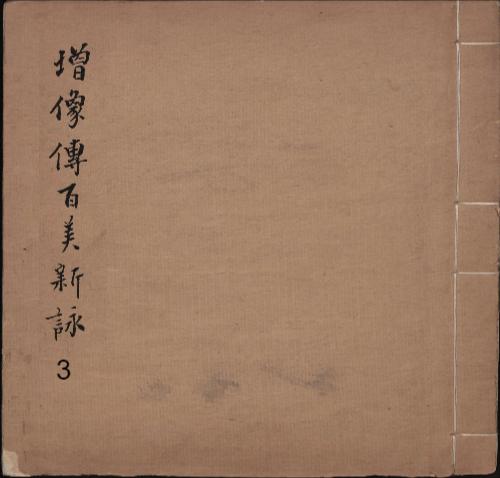 增像傳百美新詠
3